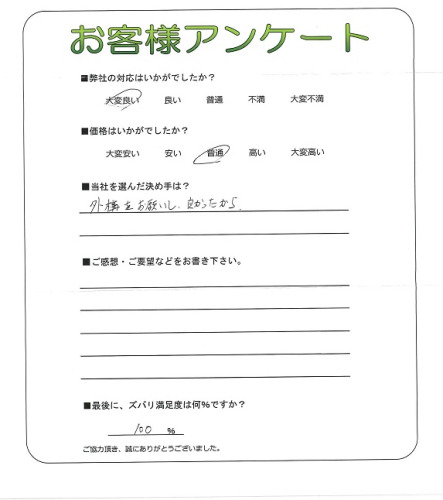 お客様アンケート
■弊社の対応はいかがでしたか？
大変良い 良い 普通 不満 大変不満
■価格はいかがでしたか？
大変安い 安い 普通 高い 大変高い
■当社を選んだ決め手は？
外構をお願いし、良かったから。
■ご感想・ご要望などをお書き下さい。
■最後に、ズバリ満足度は何％ですか？
100 ％
ご協力頂き、誠にありがとうございました。